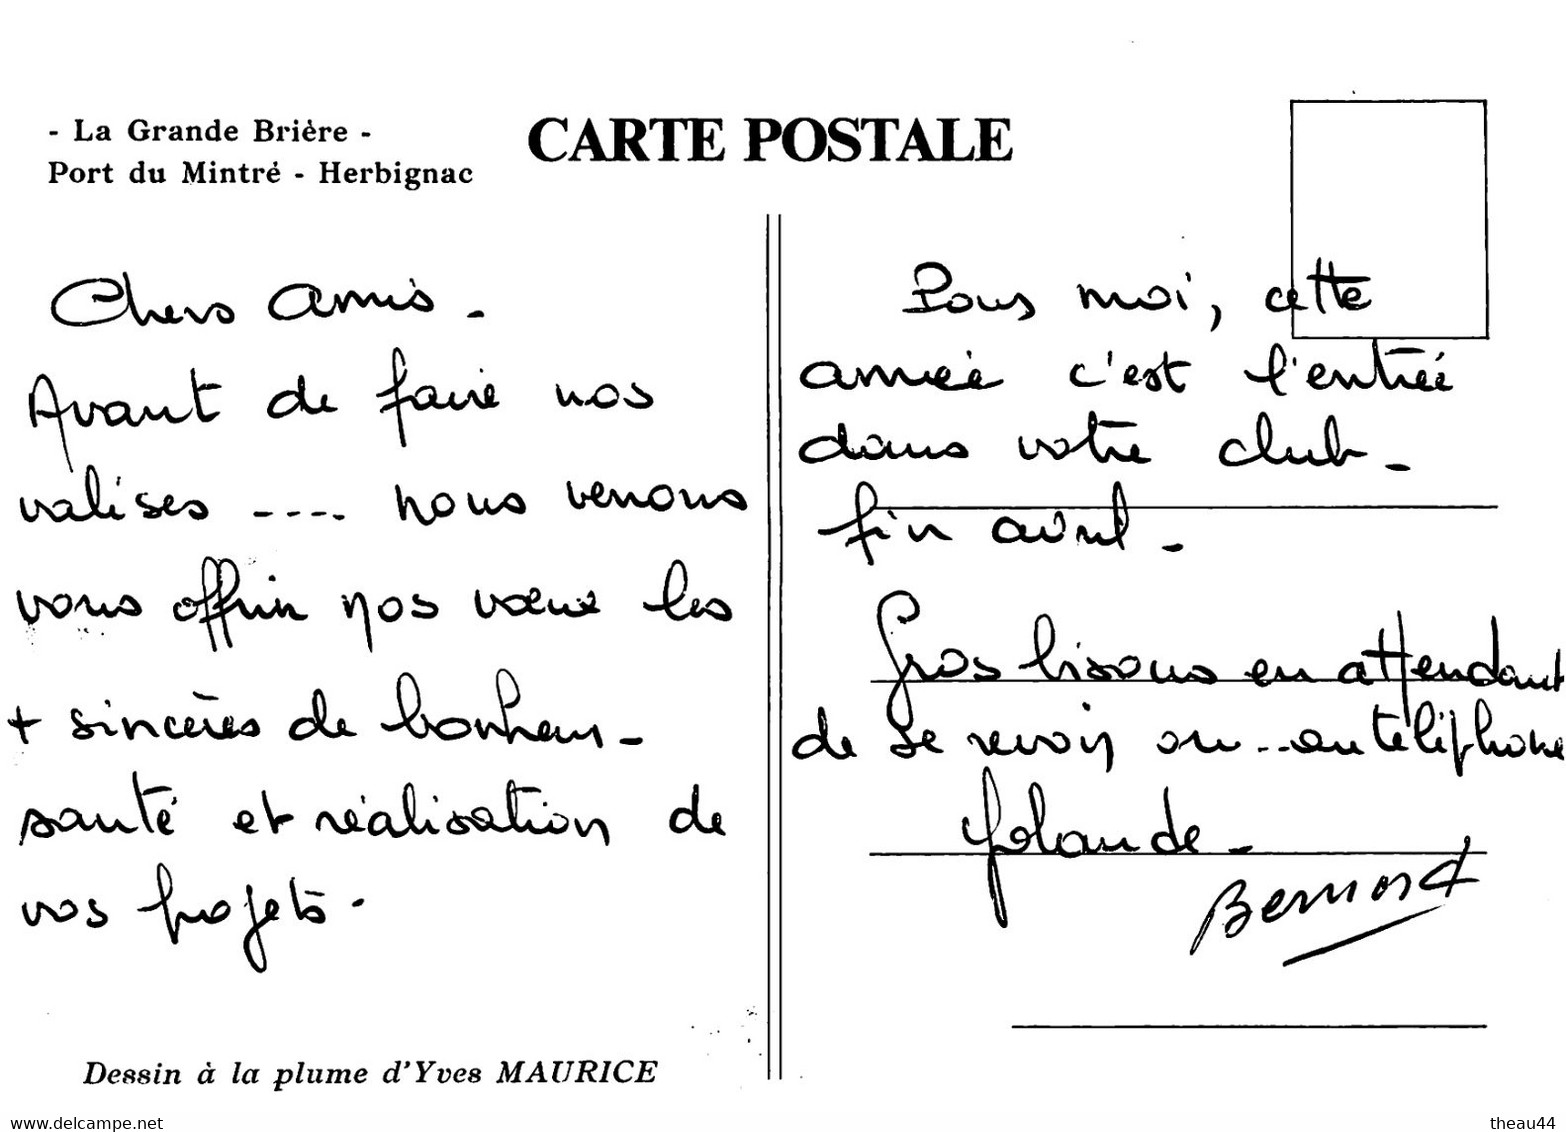 - La Grande Brière -
Port du Mintré - Herbignac
CARTE POSTALE
Chers amis -
Avant de faire nos
valises ---- nous venons
vous offrir nos vœux les
+ sincères de bonheur -
santé et réalisation de
vos projets .
Pour moi, cette
année c'est l'entrée
dans votre club -
fin avril -
Gros bisous en attendant
de se revoir ou -- au téléphone
Yolande -
Bernard
Dessin à la plume d'Yves MAURICE
www.delcampe.net
theau44